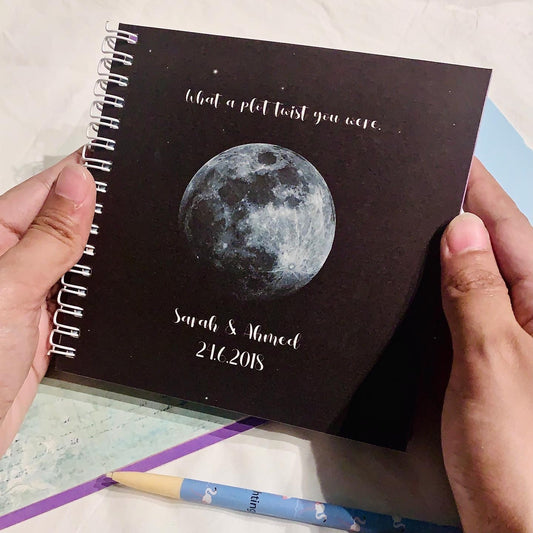 What a plot twist you were.
Sarah & Ahmed
21.6.2018